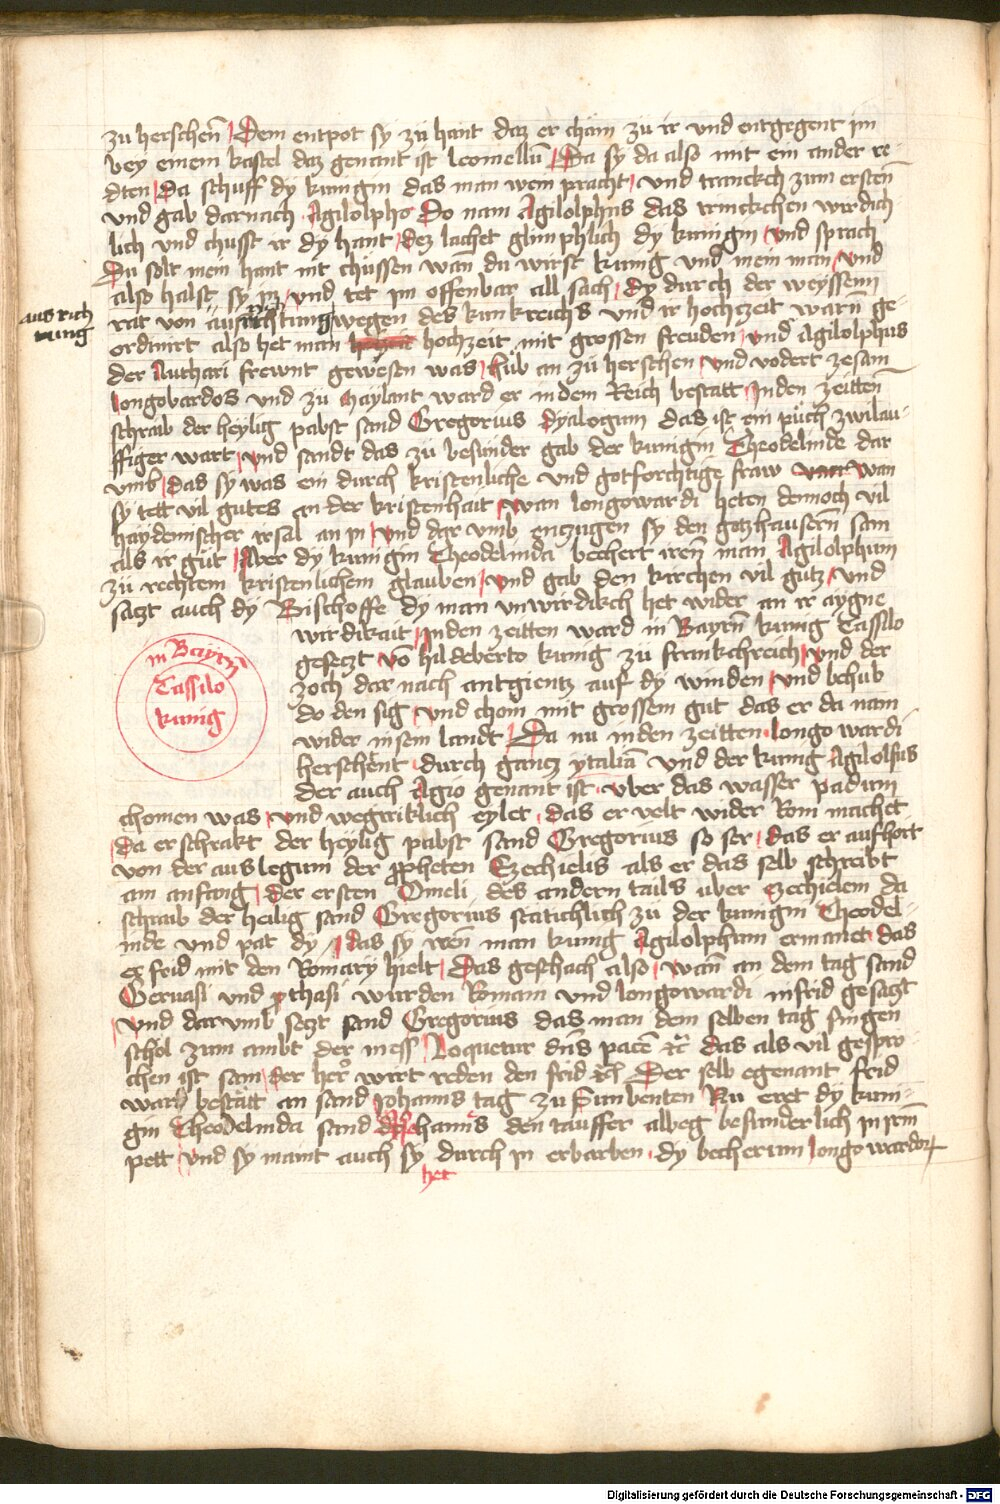 zu herschen̄ Dem entpot sy zů hant daz er chäm zu ir und entgegent im
bey einem kastel daz genant ist leomellū Da sy da also mit ein ander re-
dten Da schuff dy kunigin das man wein pracht und tranckch zum ersten
und gab darnach Agilolpho Do nam Agilolphus das trinckchen wirdich
lich und chusst ir dy hant dez lachet glimphlich dy kunigin und sprach
Du solt mein hant nit chüssen wan̄ du wirst kunig und mein man und
also halst sy in und tet im offenbar all sach dy durch der weyssenn
aus rich
tung
rat von ausrichtung wegen des kunkreichs und ir hochczeit warn̄ ge-
ordinirt also het man hochzeit mit grossen freuden und Agilolphus
der Authari frewnt gewesen was hůb an zů herschen und vodert zesam
longobardos und zu Maylant ward er in dem Reich bestatt In den zeitten
schraib der heylig pabst sand Gregorius dyalogum das ist ein půch zwilau-
ffiger wart und sandt das zů besunder gab der kunigin Theodelinde dar
umb das sy was ein durch kristenliche und gotforchtige fraw wan
sy tett vil gutes an der kristenhait wan longowardi heten dennoch vil
haydenischer irsal an in und dar umb enczugen sy den gotzhausern̄ sam
als ir gůt Aber dy kunigin Theodelinda bechert iren̄ man Agilolphum
zů rechtem kristenlichem glauben und gab den kirchen vil gůtz und
saczt auch dy Bischoffe dy man unwirdikch het wider an ir aygne
wirdikait In den zeitten ward in Bayrn̄ kunig Tassilo
in Bayrn̄
Tassilo
kunig
geseczt vō hildeberto kunig zu frankchreich und der
zoch dar nach antgientz auf dy winden und behub
do den sig und chom mit grossem gut das er da nam
wider in sein landt Da nu in den zeitten longowardi
herschent durch gancz ytaliā und der kunig Agilolfus
der auch Agio genant ist uber das wasser padum
chomen was und wegiriklich eylet das er velt wider Rom machet
da erschrakt der heylig pabst sand Gregorius so ser das er aufhort
von der auslegum der propheten Ezechielis als er das selb schreibt
am anfang der ersten Omeli des andern tails uber ezechielem da
schraib der heilig sand Gregorius statichlich zů der kunigin Theodel-
inde und pat dy das sy iren̄ man kunig Agilolphum ermanet das
er frid mit den Romary hielt Das geschach also wan̄ an dem tag sand
Geruasi und prothasi wurden Romani und longowardi in frid gesaczt
und darumb seczt sand Gregorius das man dem selben tag singen
schol zum ambt der mess Loquetur dn̄s pacē etc̄ das als vil gespro-
chen ist sam der her wirt reden den frid etc̄ Der selb egenant frid
ward bestätt an sand Johanns tag zu Sunbenten Nu eret dy kuni-
gin Theodelinda sand Johanns den tauffer albeg besunderlich in irm̄
pett und sy maint auch sy durch in erbarben dy becherum longowardor̄
het
Digitalisierung gefördert durch die Deutsche Forschungsgemeinschaft - DFG